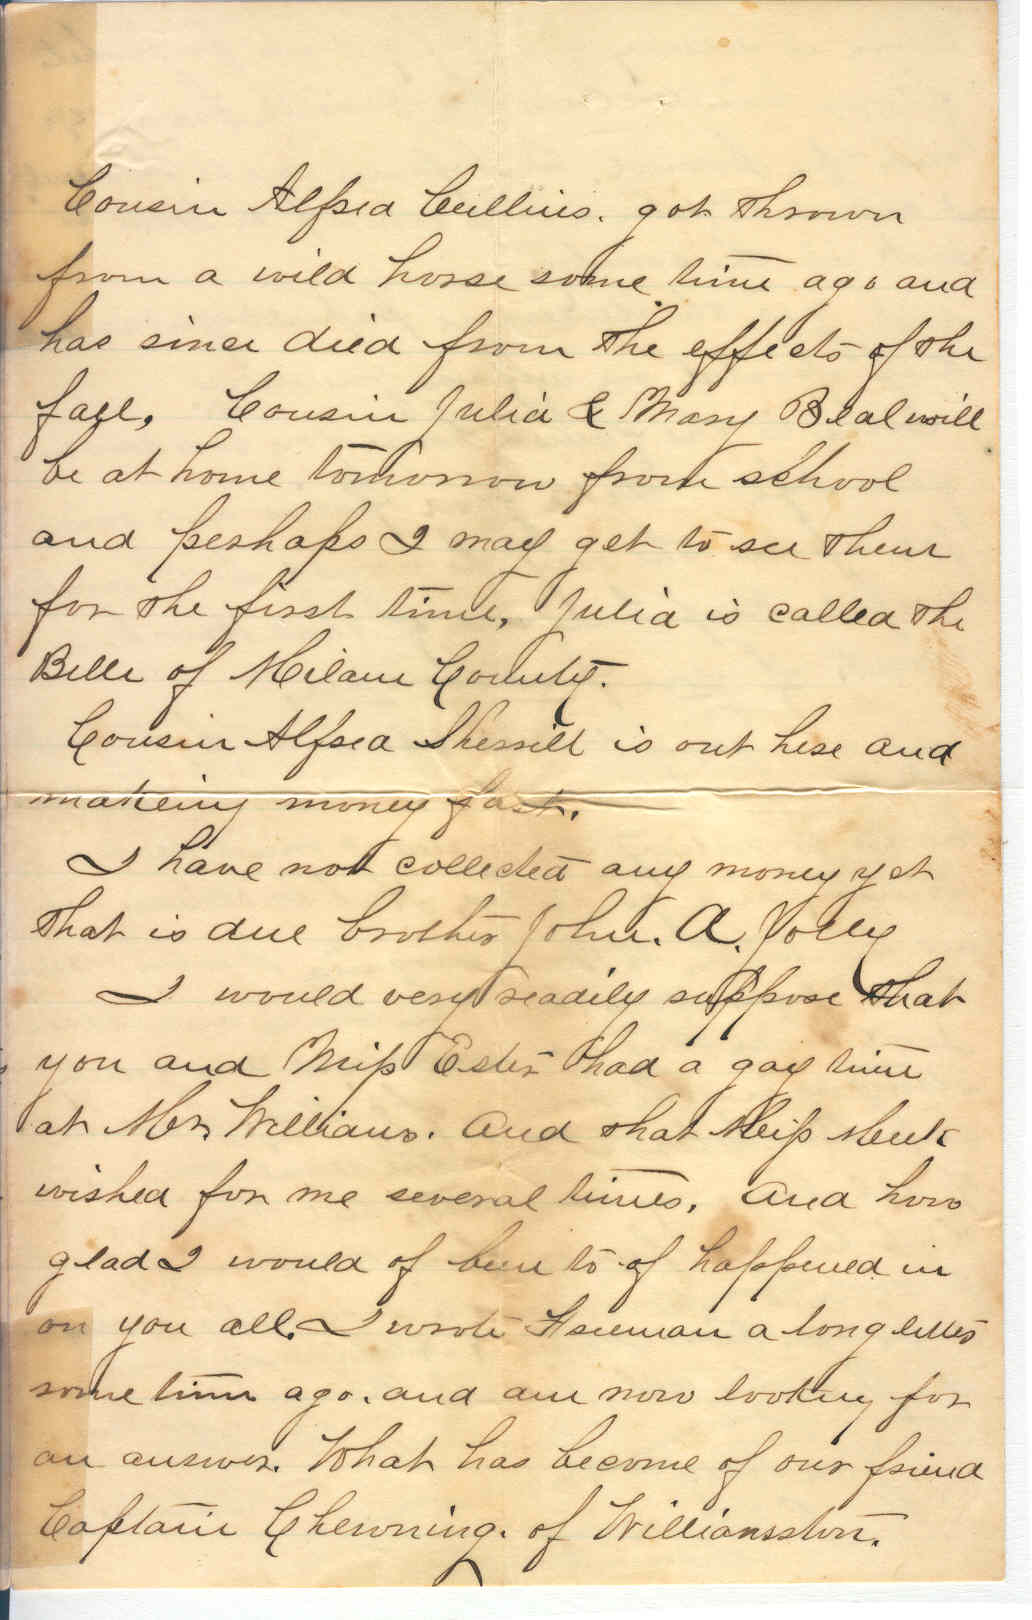 Cousin Alfred Cullins. got thrown
from a wild horse some time ago and
has since died from the effects of the
fall, Cousin Julia & Mary Beal will
be at home tomorrow from school
and perhaps I may get to see them
for the first time, Julia is called the
Belle of Milam County.
Cousin Alfred Sherrill is out here and
makeing money fast.
I have not collected any money yet
that is due brother John. A. Jolly
I would very readily suppose that
you and Miss Ester had a gay time
at Mr. Williams. And that Miss Meek
wished for me several times, And how
glad I would of been to of happened in
on you all. I wrote Freeman a long letter
some time ago. and am now looking for
an answer. What has become of our friend
Captain Chewning. of Williamston.